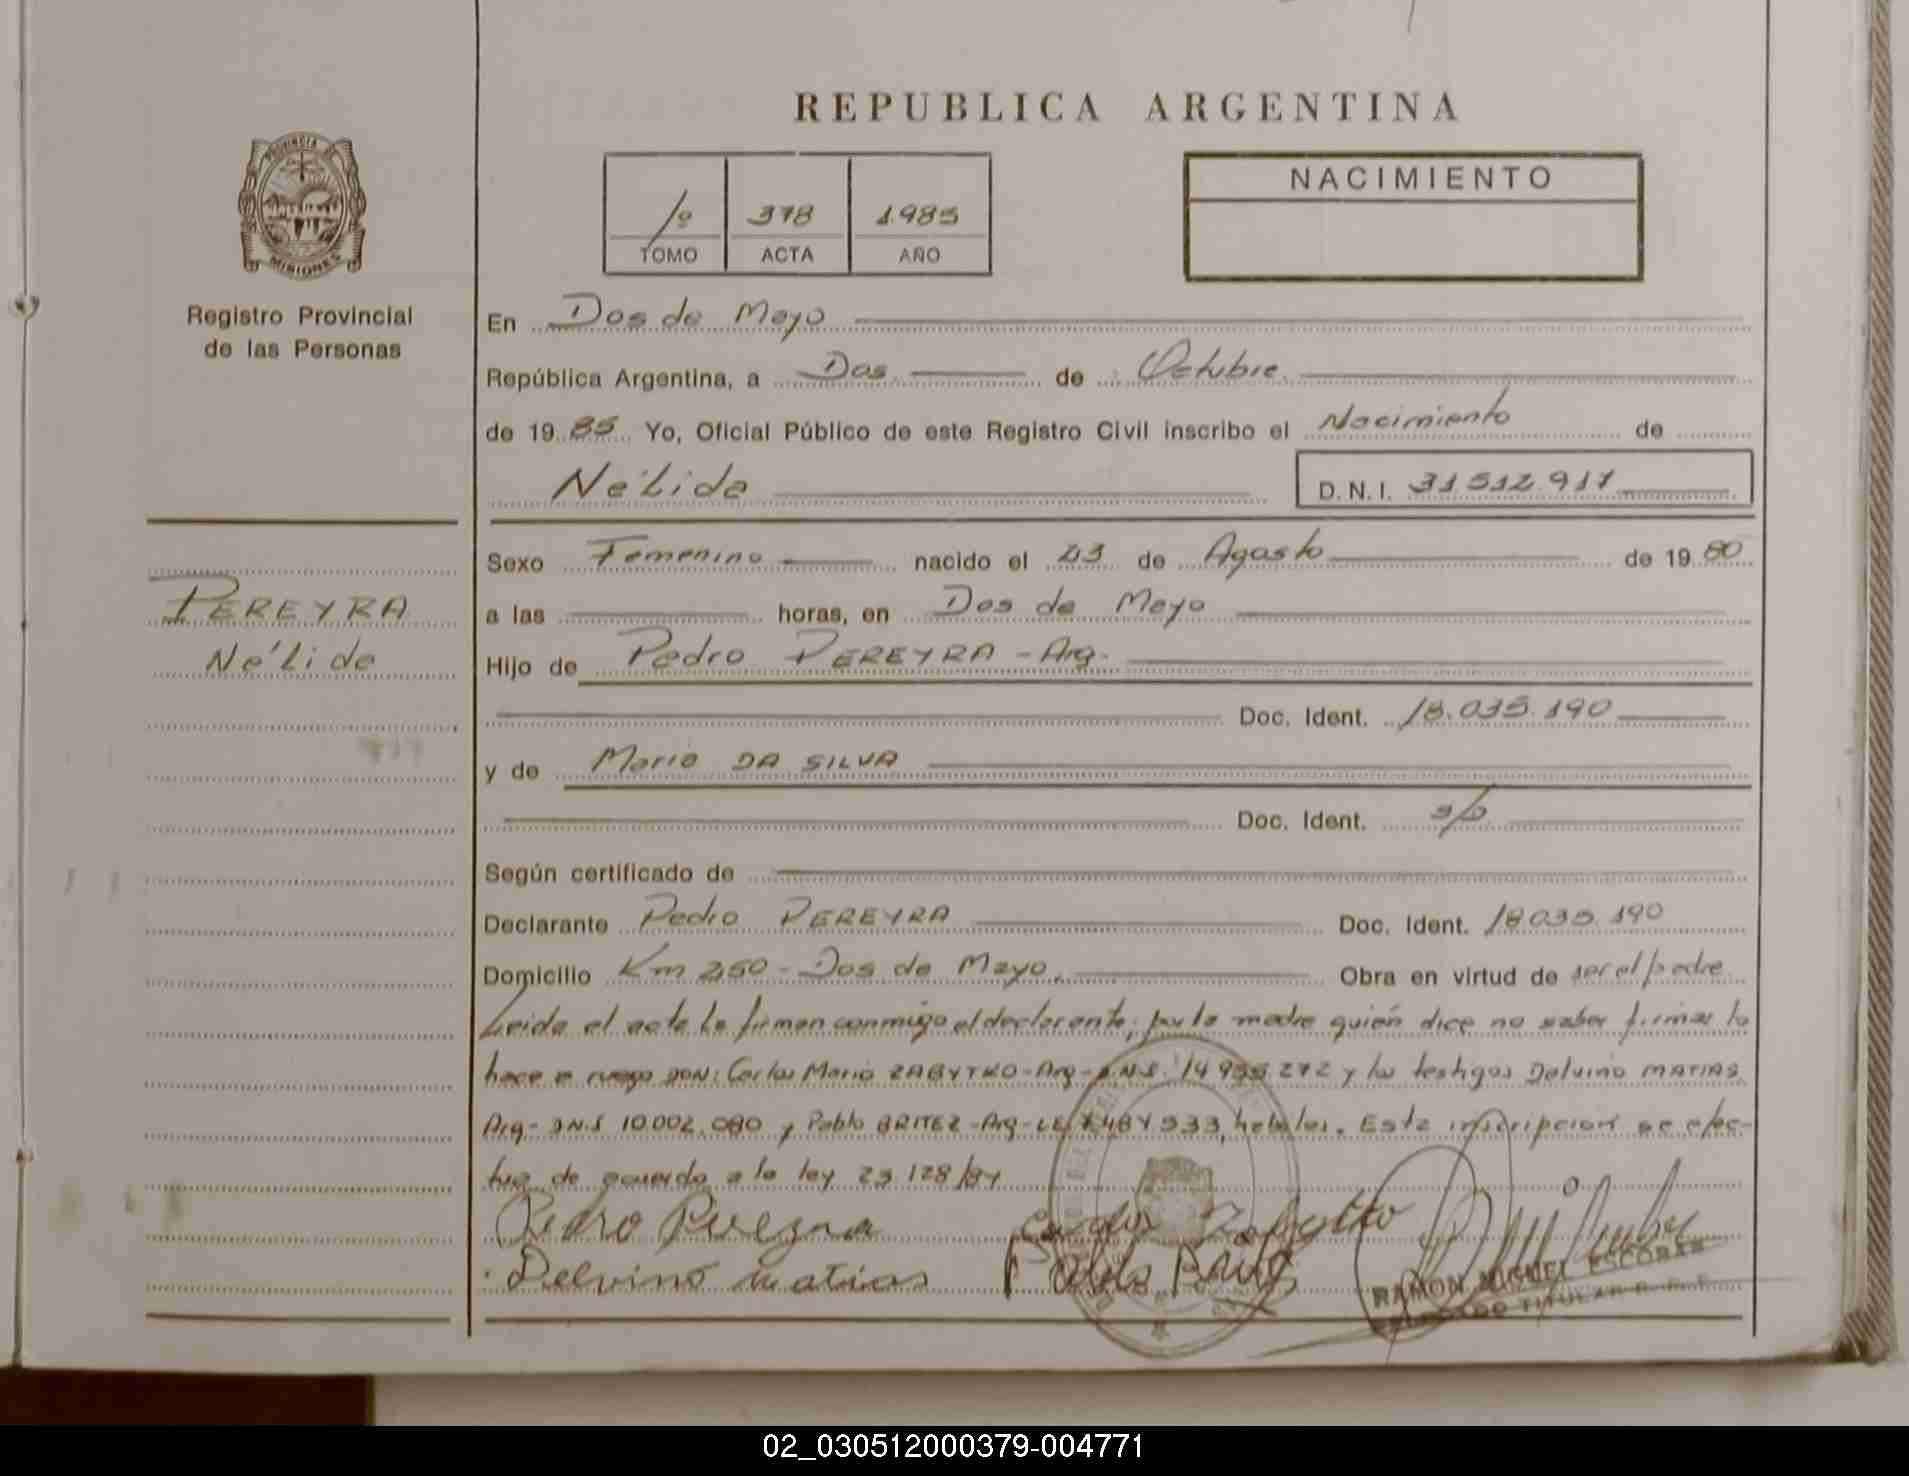 REPUBLICA ARGENTINA
PROVINCIA DE
MISIONES
Registro Provincial
de las Personas
1º 378 1.985
TOMO ACTA AÑO
NACIMIENTO
En Dos de Mayo
República Argentina, a Dos de Octubre
de 19 85 Yo, Oficial Público de este Registro Civil inscribo el Nacimiento de
Nélida D.N.I. 31.512.917
PEREYRA
Nélida
Sexo Femenino nacido el 23 de Agosto de 19 80
a las horas, en Dos de Mayo
Hijo de Pedro PEREYRA - Arg.
Doc. Ident. 18.035.190
y de Maria DA SILVA
Doc. Ident. s/d
Según certificado de
Declarante Pedro PEREYRA Doc. Ident. 18.035.190
Domicilio Km 250 - Dos de Mayo Obra en virtud de ser el padre
Leida el acta la firman conmigo el declarante, por la madre quién dice no saber firmar lo
hace a ruego DON: Carlos Mario ZABYTKO - Arg - D.N.I. 14.935.272 y los testigos Delvino MATIAS
Arg - D.N.I 10.002.080 y Pablo BRITEZ - Arg - LE 484 933, habiles. Esta inscripcion se efec-
tua de acuerdo a la ley 23.128/84
Pedro Pereyra Carlos Zabytko
Delvino Matias Pablo Britez
RAMON MIGUEL ESCOBAR
TITULAR
02_030512000379-004771